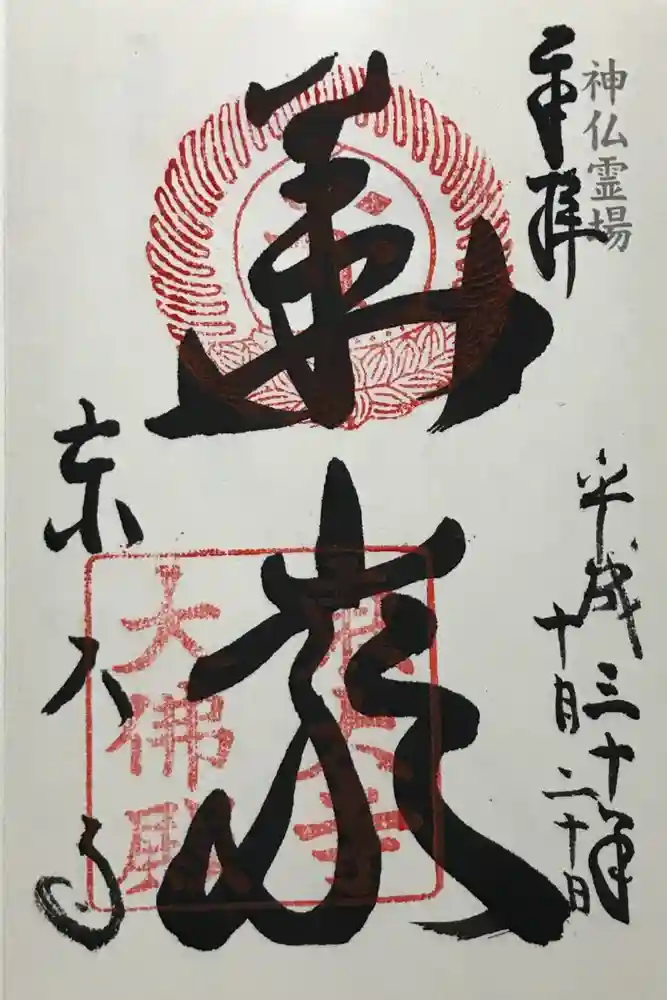 神仏霊場
奉拝
平成三十年
十月二十日
華
嚴
東大寺
東大寺
大佛殿